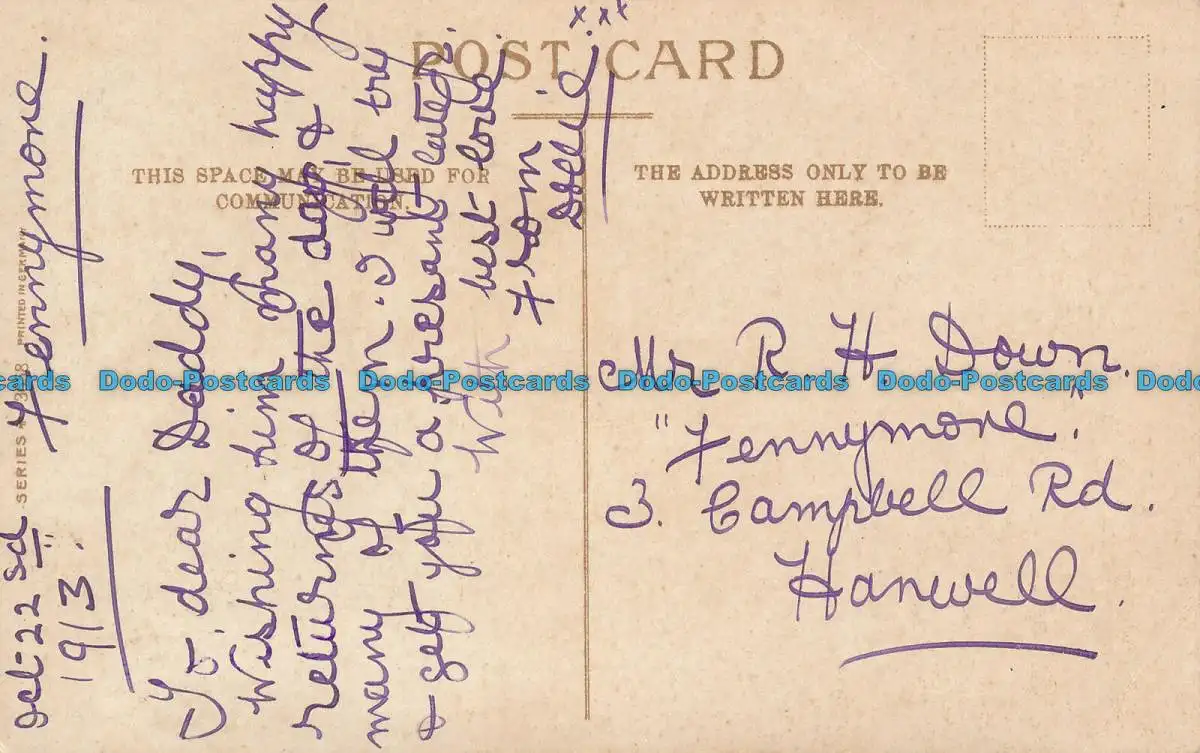 POST CARD
THIS SPACE MAY BE USED FOR
COMMUNICATION.
THE ADDRESS ONLY TO BE
WRITTEN HERE.
Fennymore.
Oct 22nd
1913.
To dear Daddy,
Wishing him many happy
returns of the day &
many of them. I will try
& get you a presant later.
With best love
From
xxx
Mr R. H. Down.
"Fennymore."
3. Campbell Rd.
Hanwell.
PRINTED IN GERMANY
SERIES
Dodo-Postcards Dodo-Postcards Dodo-Postcards Dodo-Postcards